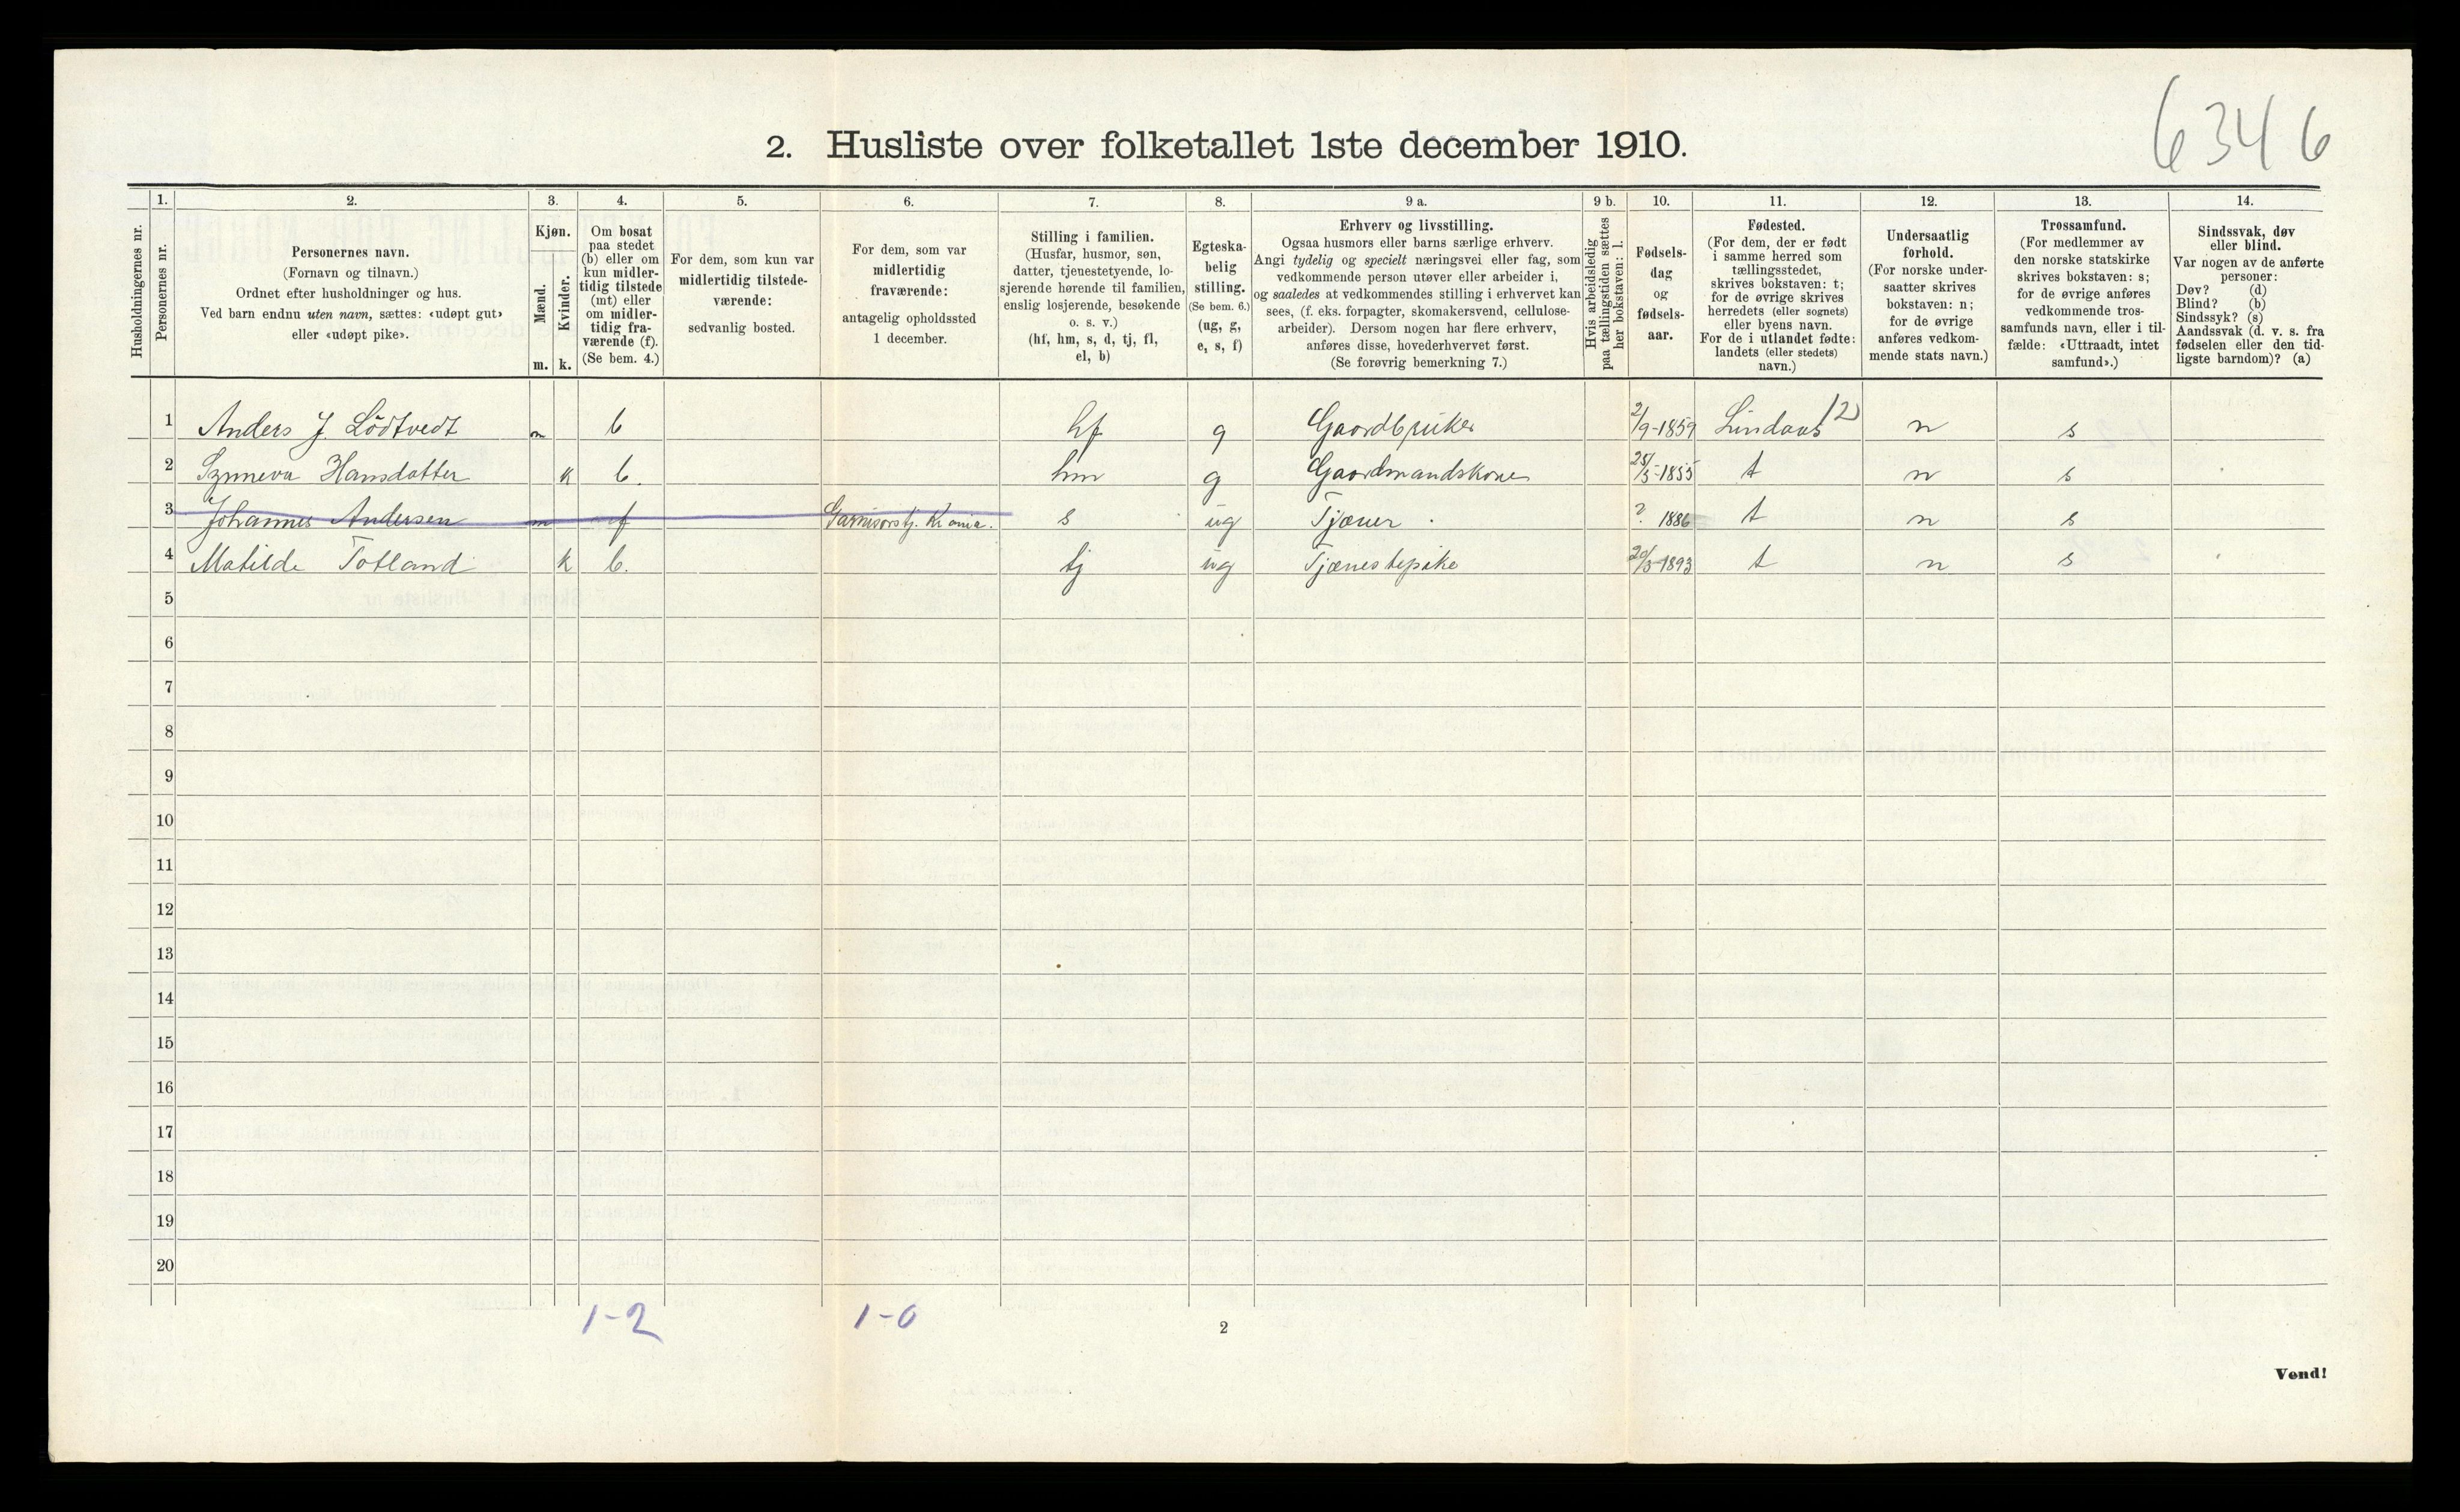 6346
2. Husliste over folketallet 1ste december 1910.
1. 2. 3. 4. 5. 6. 7. 8. 9 a. 9 b. 10. 11. 12. 13. 14.
Husholdningernes nr.
Personernes nr.
Personernes navn.
(Fornavn og tilnavn.)
Ordnet efter husholdninger og hus.
Ved barn endnu uten navn, sættes: «udøpt gut»
eller «udøpt pike».
Kjøn.
Mænd.
Kvinder.
m. k.
Om bosat
paa stedet
(b) eller om
kun midler-
tidig tilstede
(mt) eller
om midler-
tidig fra-
værende (f).
(Se bem. 4.)
For dem, som kun var
midlertidig tilstede-
værende:
sedvanlig bosted.
For dem, som var
midlertidig
fraværende:
antagelig opholdssted
1 december.
Stilling i familien.
(Husfar, husmor, søn,
datter, tjenestetyende, lo-
sjerende hørende til familien,
enslig losjerende, besøkende
o. s. v.)
(hf, hm, s, d, tj, fl,
el, b)
Egteska-
belig
stilling.
(Se bem. 6.)
(ug, g,
e, s, f)
Erhverv og livsstilling.
Ogsaa husmors eller barns særlige erhverv.
Angi tydelig og specielt næringsvei eller fag, som
vedkommende person utøver eller arbeider i,
og saaledes at vedkommendes stilling i erhvervet kan
sees, (f. eks. forpagter, skomakersvend, cellulose-
arbeider). Dersom nogen har flere erhverv,
anføres disse, hovederhvervet først.
(Se forøvrig bemerkning 7.)
Hvis arbeidsledig
paa tællingstiden sættes
her bokstaven: l.
Fødsels-
dag
og
fødsels-
aar.
Fødested.
(For dem, der er født
i samme herred som
tællingsstedet,
skrives bokstaven: t;
for de øvrige skrives
herredets (eller sognets)
eller byens navn.
For de i utlandet fødte:
landets (eller stedets)
navn.)
Undersaatlig
forhold.
(For norske under-
saatter skrives
bokstaven: n;
for de øvrige
anføres vedkom-
mende stats navn.)
Trossamfund.
(For medlemmer av
den norske statskirke
skrives bokstaven: s;
for de øvrige anføres
vedkommende tros-
samfunds navn, eller i til-
fælde: «Uttraadt, intet
samfund».)
Sindssvak, døv
eller blind.
Var nogen av de anførte
personer:
Døv? (d)
Blind? (b)
Sindssyk? (s)
Aandssvak (d. v. s. fra
fødselen eller den tid-
ligste barndom)? (a)
1 Anders J. Lödtvedt m b hf g Gaardbruker 2/9-1859 Lindaas 12 n s
2 Synneva Hansdatter k b. hm g Gaardmandskone 25/5-1855 t n s
3 Johannes Andersen m f Garnisonstj. Kr.ania. s ug Tjæner. ? 1886 t n s
4 Matilde Totland k b. tj ug Tjænestepike 20/5-1893 t n s
5
6
7
8
9
10
11
12
13
14
15
16
17
18
19
20
1-2 1-0
2
Vend!